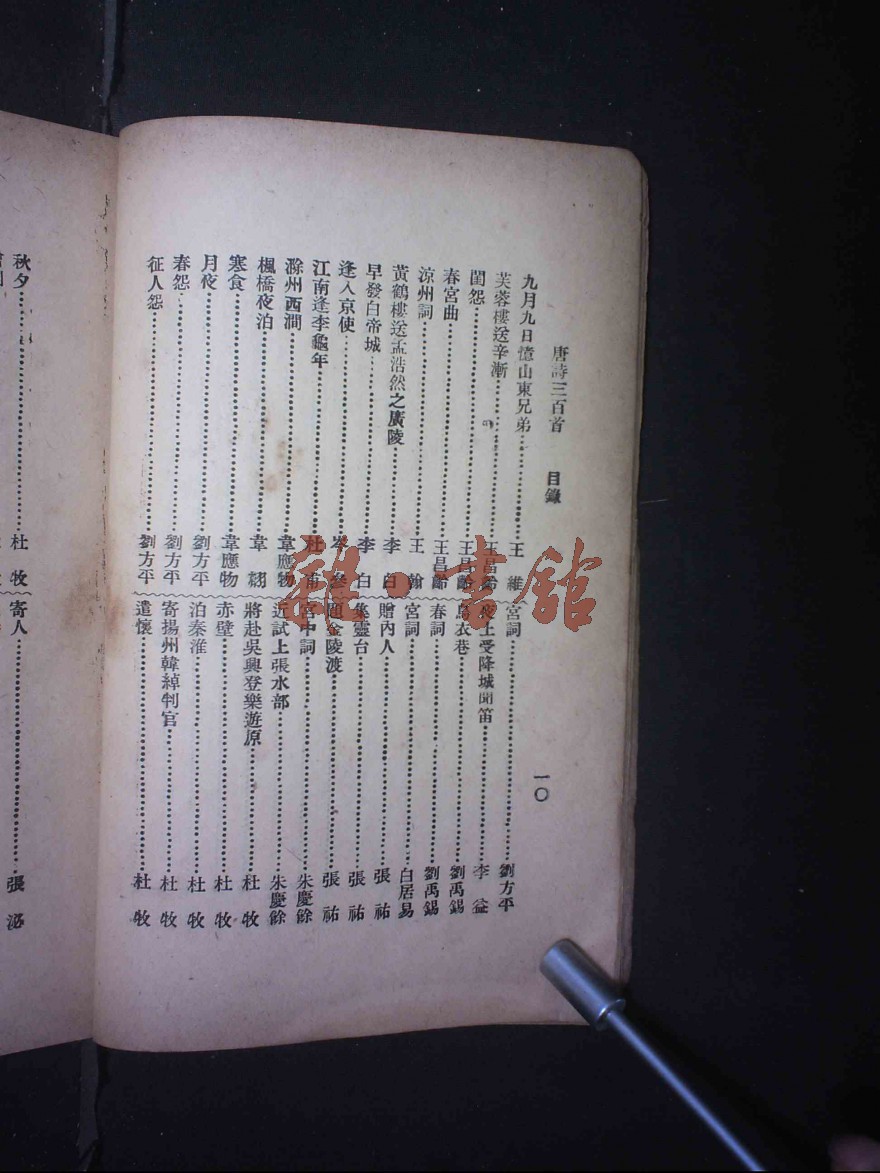 唐詩三百首 目錄 一〇
九月九日憶山東兄弟……王維
芙蓉樓送辛漸……王昌齡
閨怨……王昌齡
春宮曲……王昌齡
涼州詞……王翰
黃鶴樓送孟浩然之廣陵……李白
早發白帝城……李白
逢入京使……岑參
江南逢李龜年……杜甫
滁州西澗……韋應物
楓橋夜泊……韋翃
寒食……韋應物
月夜……劉方平
春怨……劉方平
征人怨……劉方平
宮詞……劉方平
夜上受降城聞笛……李益
烏衣巷……劉禹錫
春詞……劉禹錫
宮詞……白居易
贈內人……張祐
集靈台……張祐
題金陵渡……張祐
宮中詞……朱慶餘
近試上張水部……朱慶餘
將赴吳興登樂遊原……杜牧
赤壁……杜牧
泊秦淮……杜牧
寄揚州韓綽判官……杜牧
遣懷……杜牧
秋夕……杜牧
寄人……張泌
雜·書館